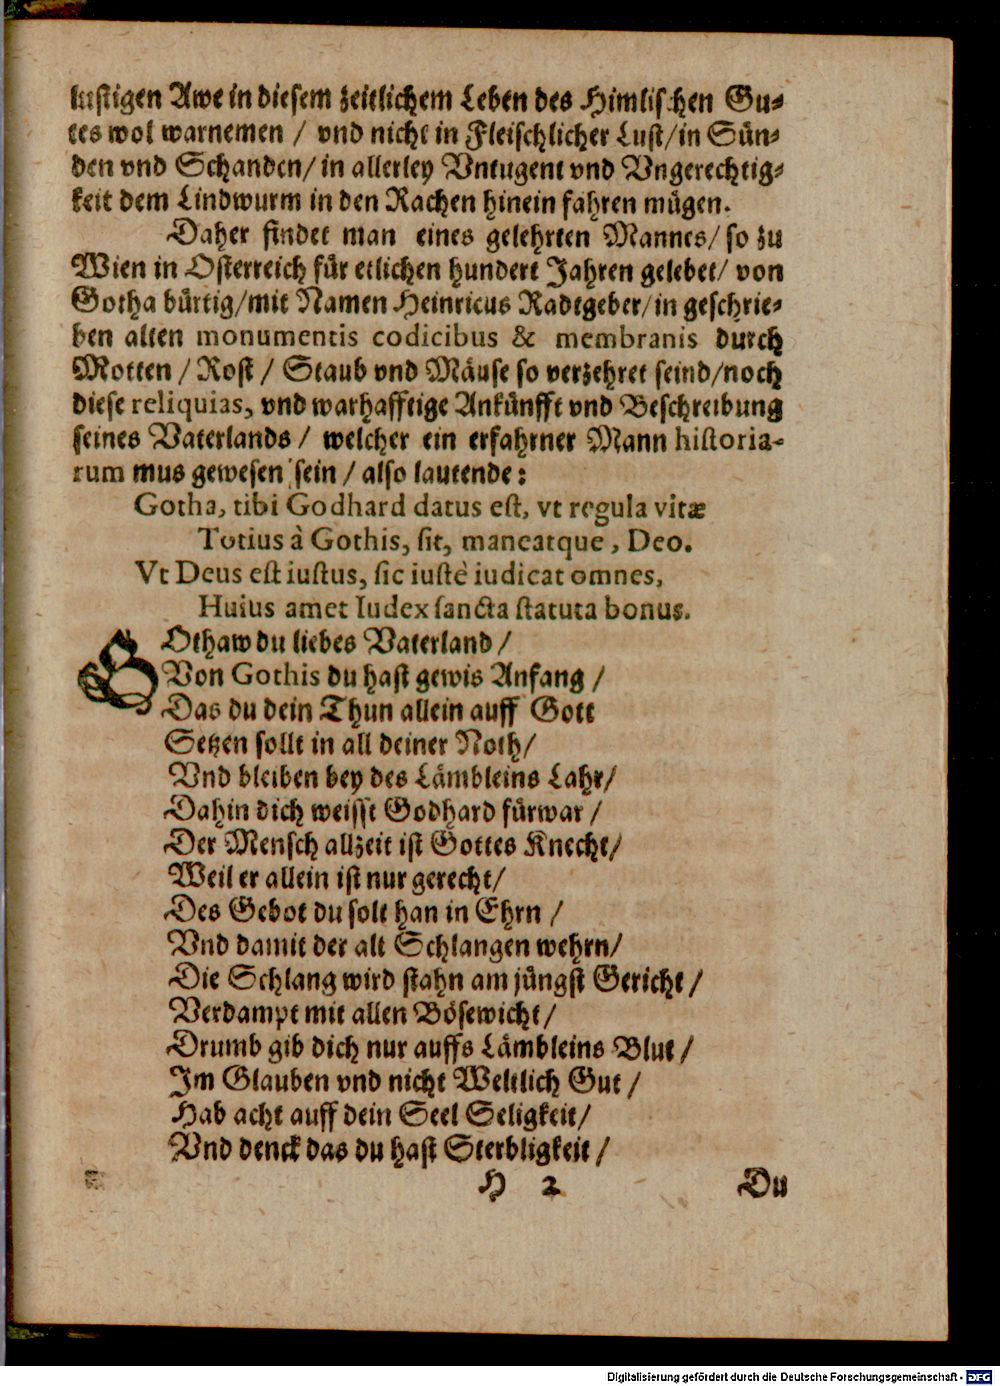 lustigen Awe in diesem zeitlichem Leben des Himlischen Gu⸗
tes wol warnemen / vnd nicht in Fleischlicher Lust/in Sün⸗
den vnd Schanden/ in allerley Vntugent vnd Vngerechtig⸗
keit dem Lindwurm in den Rachen hinein fahren mügen.
Daher findet man eines gelehrten Mannes/ so zu
Wien in Osterreich für etlichen hundert Jahren gelebet/ von
Gotha bürtig/mit Namen Heinricus Radtgeber/in geschrie⸗
ben alten monumentis codicibus & membranis durch
Motten / Rost / Staub vnd Mäuse so verzehret seind/noch
diese reliquias, vnd warhafftige Ankünfft vnd Beschreibung
seines Vaterlands / welcher ein erfahrner Mann historia-
rum mus gewesen sein / also lautende:
Gotha, tibi Godhard datus est, vt regula vitæ
Totius à Gothis, sit, maneatque, Deo.
Vt Deus est iustus, sic iustè iudicat omnes,
Huius amet Iudex sancta statuta bonus.
GOthaw du liebes Vaterland /
Von Gothis du hast gewis Anfang /
Das du dein Thun allein auff Gott
Setzen sollt in all deiner Noth/
Vnd bleiben bey des Lämbleins Lahr/
Dahin dich weisst Godhard fürwar /
Der Mensch allzeit ist Gottes Knecht/
Weil er allein ist nur gerecht/
Des Gebot du solt han in Ehrn /
Vnd damit der alt Schlangen wehrn/
Die Schlang wird stahn am jüngst Gericht /
Verdampt mit allen Bösewicht /
Drumb gib dich nur auffs Lämbleins Blut /
Im Glauben vnd nicht Weltlich Gut /
Hab acht auff dein Seel Seligkeit/
Vnd denck das du hast Sterbligkeit /
H 2 Du
Digitalisierung gefördert durch die Deutsche Forschungsgemeinschaft - DFG